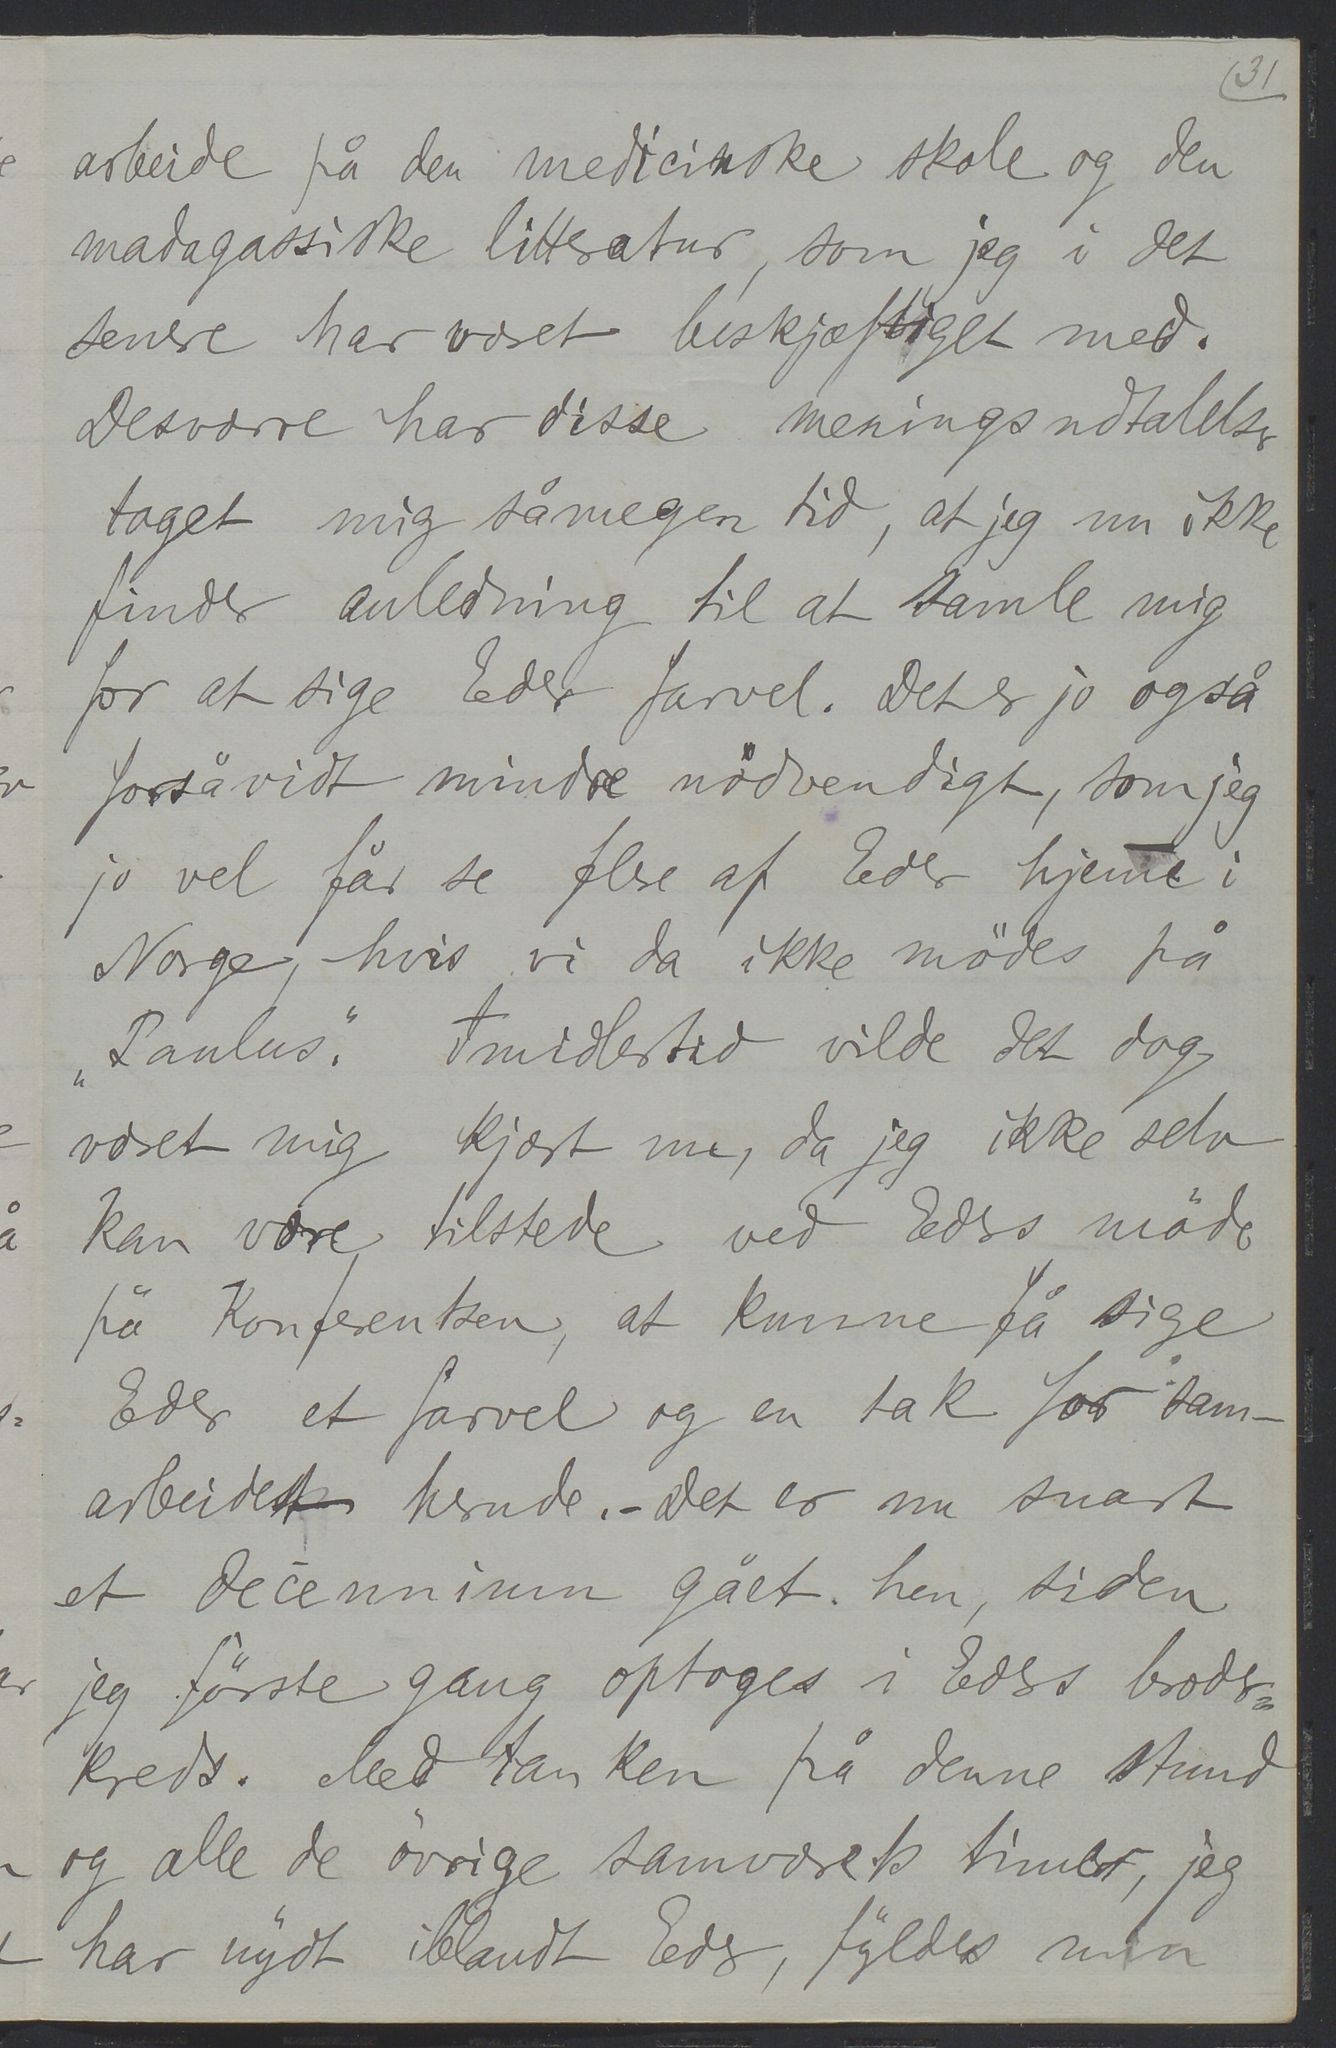 31
arbeide på den medicinske skole og den
madagassiske litteratur, som jeg i det
senere har været beskjæftiget med.
Desværre har disse meningsudtalelser
taget mig såmegen tid, at jeg nu ikke
finder anledning til at samle mig
for at sige Eder farvel. Det er jo også
forsåvidt mindre nödvendigt, som jeg
jo vel får se flere af Eder hjeme i
Norge, hvis vi da ikke mödes på
„Paulus". Imidlertid vilde det dog
været mig kjært nu, da jeg ikke selv
kan være tilstede ved Eders möde
på Konferentsen, at kunne få sige
Eder et farvel og en tak for sam-
arbeidet herude. - Det er nu snart
et decennium gået hen, siden
jeg förste gang optoges i Eders broder=
kreds. Med tanken på denne stund
og alle de övrige samværets timer, jeg
har nydt iblandt Eder, fyldes min